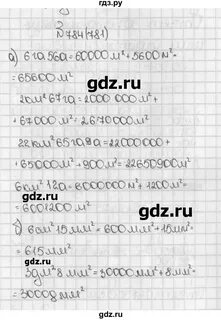 2
N784(781)
а) 6га 56а = 60000м² + 5600м² =
= 65600м²
2км² 67га = 2000 000м² +
+ 67000м² = 2670000м²
22км² 65га 9а = 22000000+
+ 65000м² + 900м² = 22650900м²
6км² 12а = 6000000м² + 1200м² =
= 6001200м²
б) 6см² 15мм² = 600мм² + 15мм² =
= 615мм²
3дм² 8мм² = 30000мм² + 8мм² =
= 30008мм²
gdz.ru
gdz.ru
gdz.ru
gdz.ru
gdz.ru
gdz.ru
gdz.ru